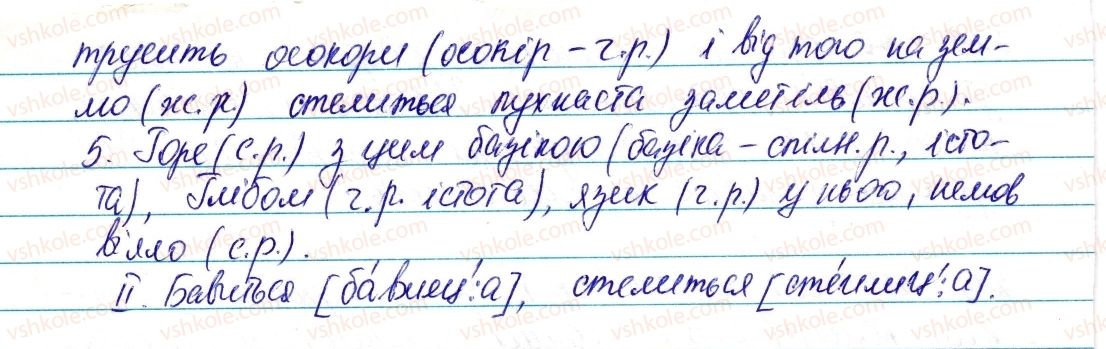 трусить осокори (осокір – ч.р.) і від того на зем-
лю (ж.р.) стелиться пухнаста заметіль (ж.р.).
5. Горе (с.р.) з цим базікою (базіка – спільн.р., істо-
та), Глібом (ч.р. істота), язик (ч.р.) у нього, немов
вілло (с.р.).
II. Бавиться [ба́виец':а], стелиться [сте́лиец':а].